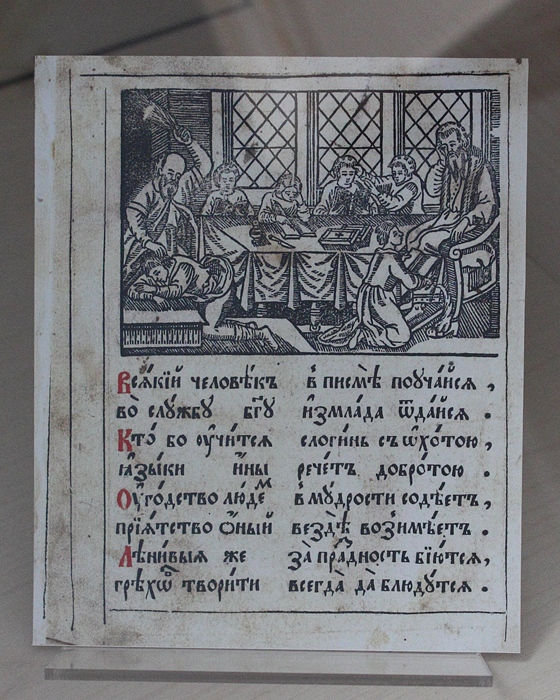 Всѧ́кїй человѣ́къ в̾ писмѣ̀ поꙋча́йсѧ ,
во̀ слꙋ́жбꙋ бг҃ꙋ и҆змла́да ѿда́йсѧ .
Кто́ бо оу҆чи́тсѧ слоги́нь съ ѡ҆хо́тою ,
ꙗ҆зы́ки и҆ны рече́тъ добро́тою .
Оу҆го́дство люде́м в̾ мꙋ́дрости содѣ́етъ ,
прїѧ́тство ѻ҆́ный вездѣ̀ вози́мѣетъ .
Лѣни́выѧ же за̀ пра́дность бїю́тсѧ ,
грѣ́хѡв твори́ти всегда̀ да̀ блюдꙋ́тсѧ .